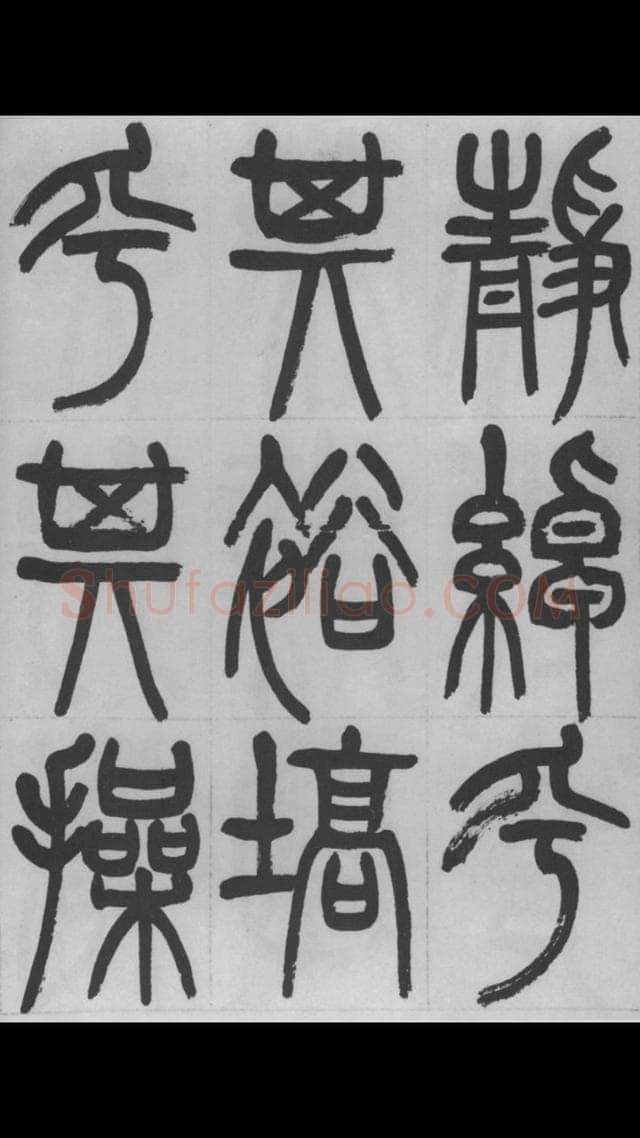 靜綽兮
其裕塙
兮其操
Shufaziliao.COM